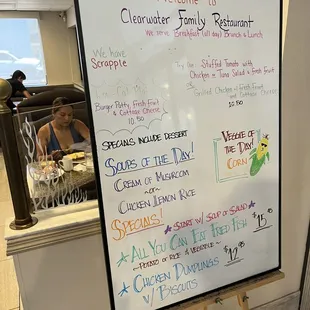 Welcome to
Clearwater Family Restaurant
We serve Breakfast (all day) Brunch & Lunch
We have
Scrapple
Try the Stuffed Tomato with
Chicken or Tuna Salad & Fresh Fruit
Burger Patty, Fresh Fruit
& Cottage Cheese
10.50
Grilled Chicken w/ Fresh Fruit
and Cottage Cheese
10.50
Specials Include Dessert
Soups of the Day!
Cream of Mushroom
-or-
Chicken Lemon Rice
Veggie of
the Day!
Corn
Specials!
Start w/ Soup or Salad
All You Can Eat Fried Fish
~Potato or Rice & Vegetable~
$15.95
Chicken Dumplings
w/ Biscuits
$12.95